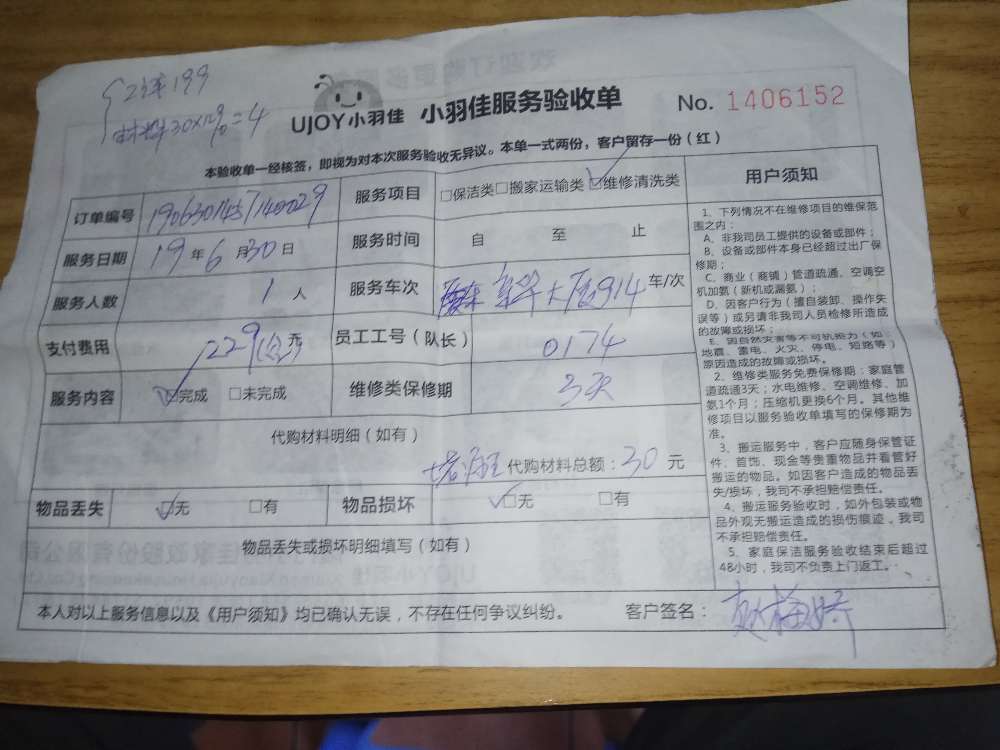 工译199
材料30×12%=4
UJOY小羽佳 小羽佳服务验收单 No. 1406152
本验收单一经核签，即视为对本次服务验收无异议。本单一式两份，客户留存一份（红）
订单编号 服务项目 □保洁类□搬家运输类☑维修清洗类 用户须知
服务日期 19年6月30日 服务时间 自 至 止
服务人数 1人 服务车次 大厦914 车/次
支付费用 229 元 员工工号（队长） 0174
服务内容 ☑完成 □未完成 维修类保修期 3天
代购材料明细（如有）
代购材料总额：30元
物品丢失 ☑无 □有 物品损坏 ☑无 □有
物品丢失或损坏明细填写（如有）
1、下列情况不在维修项目的维保范
围之内：
A、非我司员工提供的设备或部件；
B、设备或部件本身已经超过出厂保
修期；
C、商业（商铺）管道疏通、空调空
机加氨（新机或漏氨）；
D、因客户行为（擅自装卸、操作失
误等）或另请非我司人员检修所造成
的故障或损坏；
E、因自然灾害等不可抗力（如
地震、雷电、火灾、停电、短路等）
原因造成的故障或损坏。
2、维修类服务免费保修期：家庭管
道疏通3天；水电维修、空调维修、加
氨1个月；压缩机更换6个月。其他维
修项目以服务验收单填写的保修期为
准。
3、搬运服务中，客户应随身保管证
件、首饰、现金等贵重物品并看管好
搬运的物品。如因客户造成的物品丢
失/损坏，我司不承担赔偿责任。
4、搬运服务验收时，如外包装或物
品外观无搬运造成的损伤痕迹，我司
不承担赔偿责任。
5、家庭保洁服务验收结束后超过
48小时，我司不负责上门返工。
本人对以上服务信息以及《用户须知》均已确认无误，不存在任何争议纠纷。 客户签名：赵梅娇